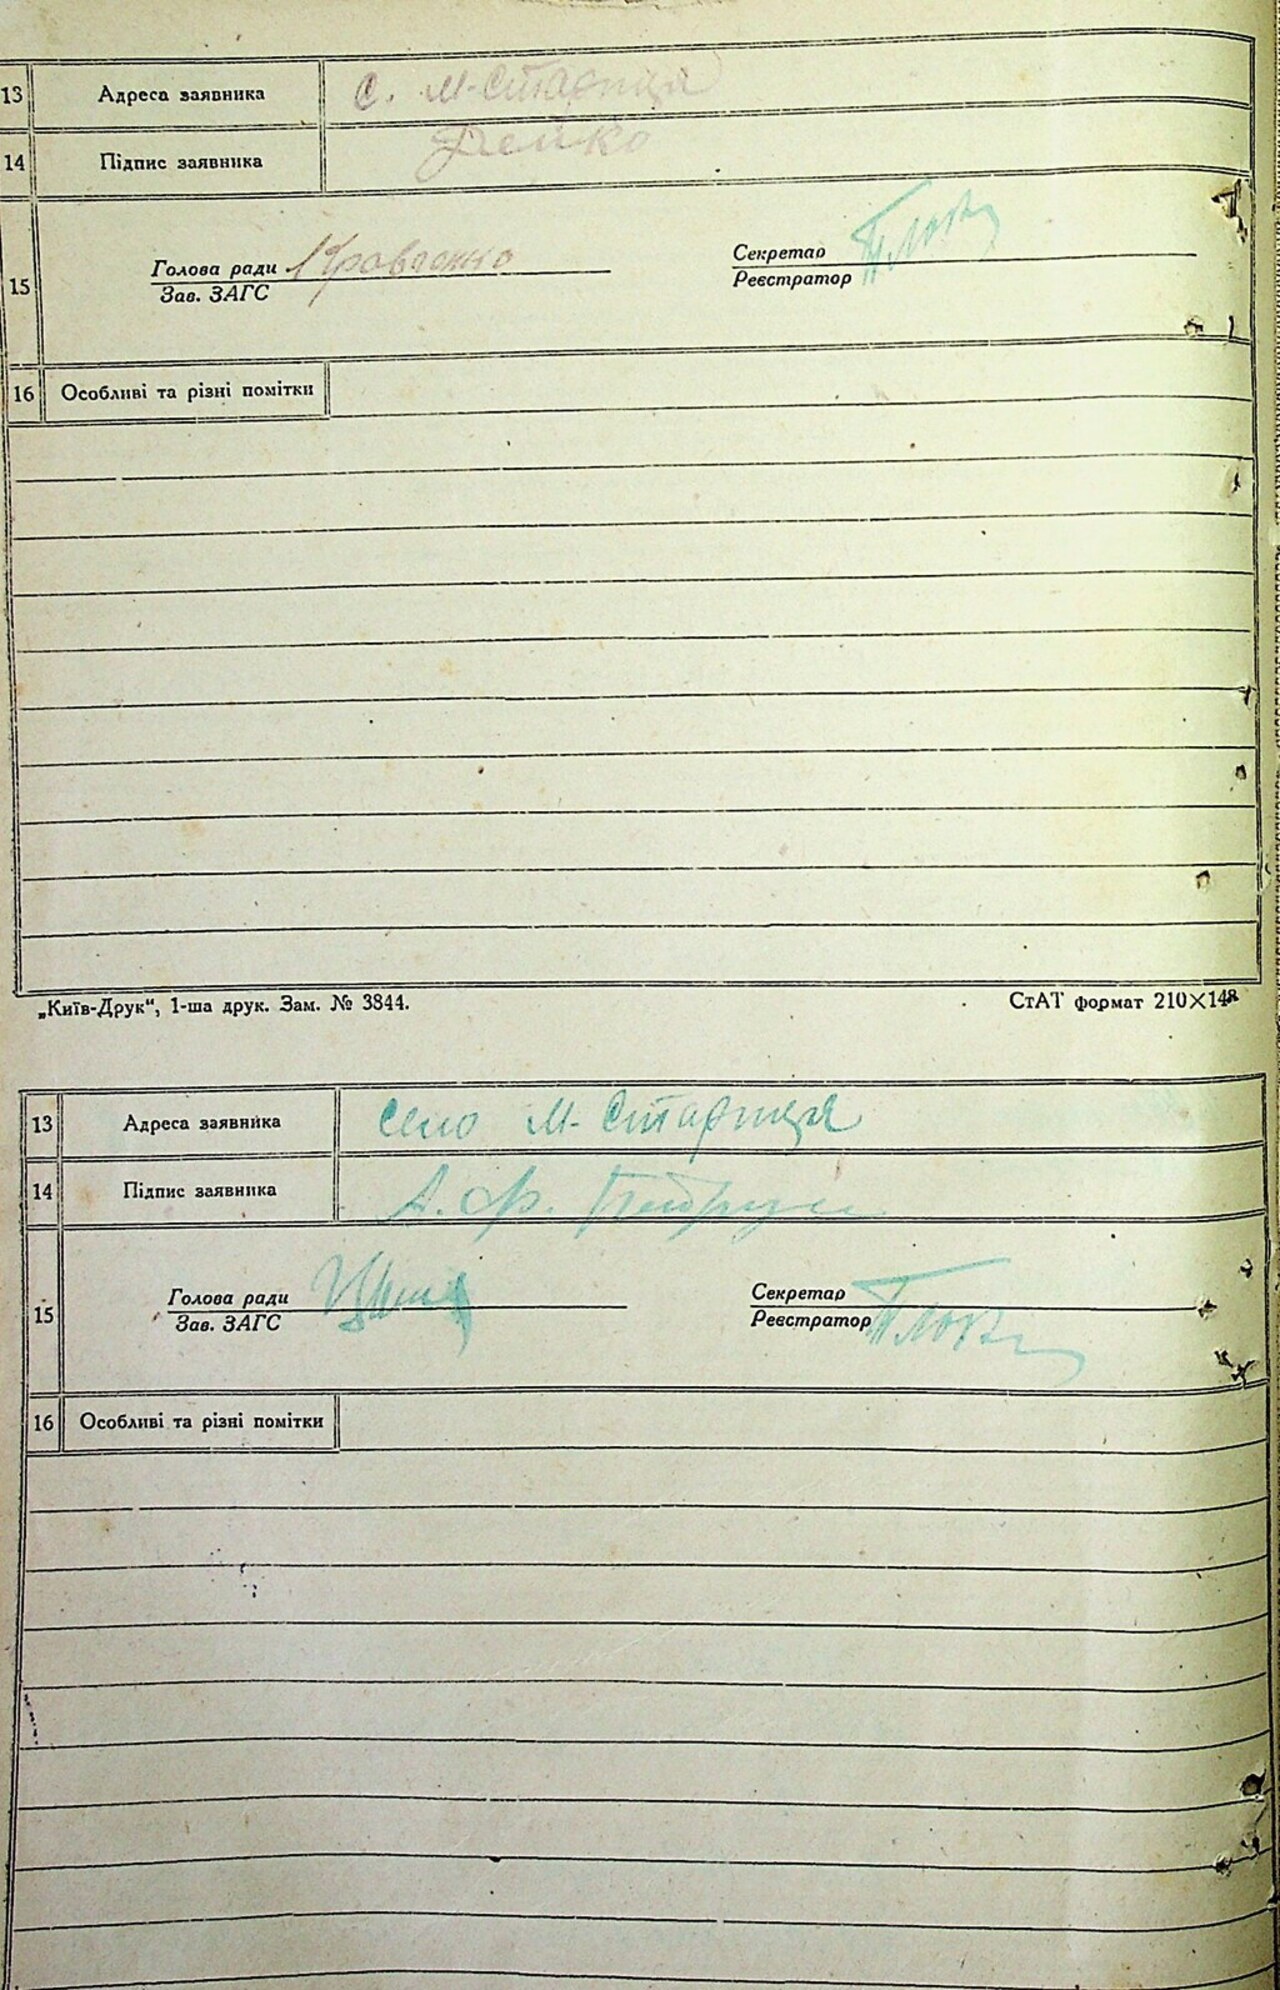 13 Адреса заявника с. М-Стариця
14 Підпис заявника Дейко
15 Голова ради Кравченко Секретар
Зав. ЗАГС Реєстратор
16 Особливі та різні помітки
„Київ-Друк“, 1-ша друк. Зам. № 3844. СтАТ формат 210×148
13 Адреса заявника село М-Стариця
14 Підпис заявника А. Ф.
15 Голова ради Секретар
Зав. ЗАГС Реєстратор
16 Особливі та різні помітки